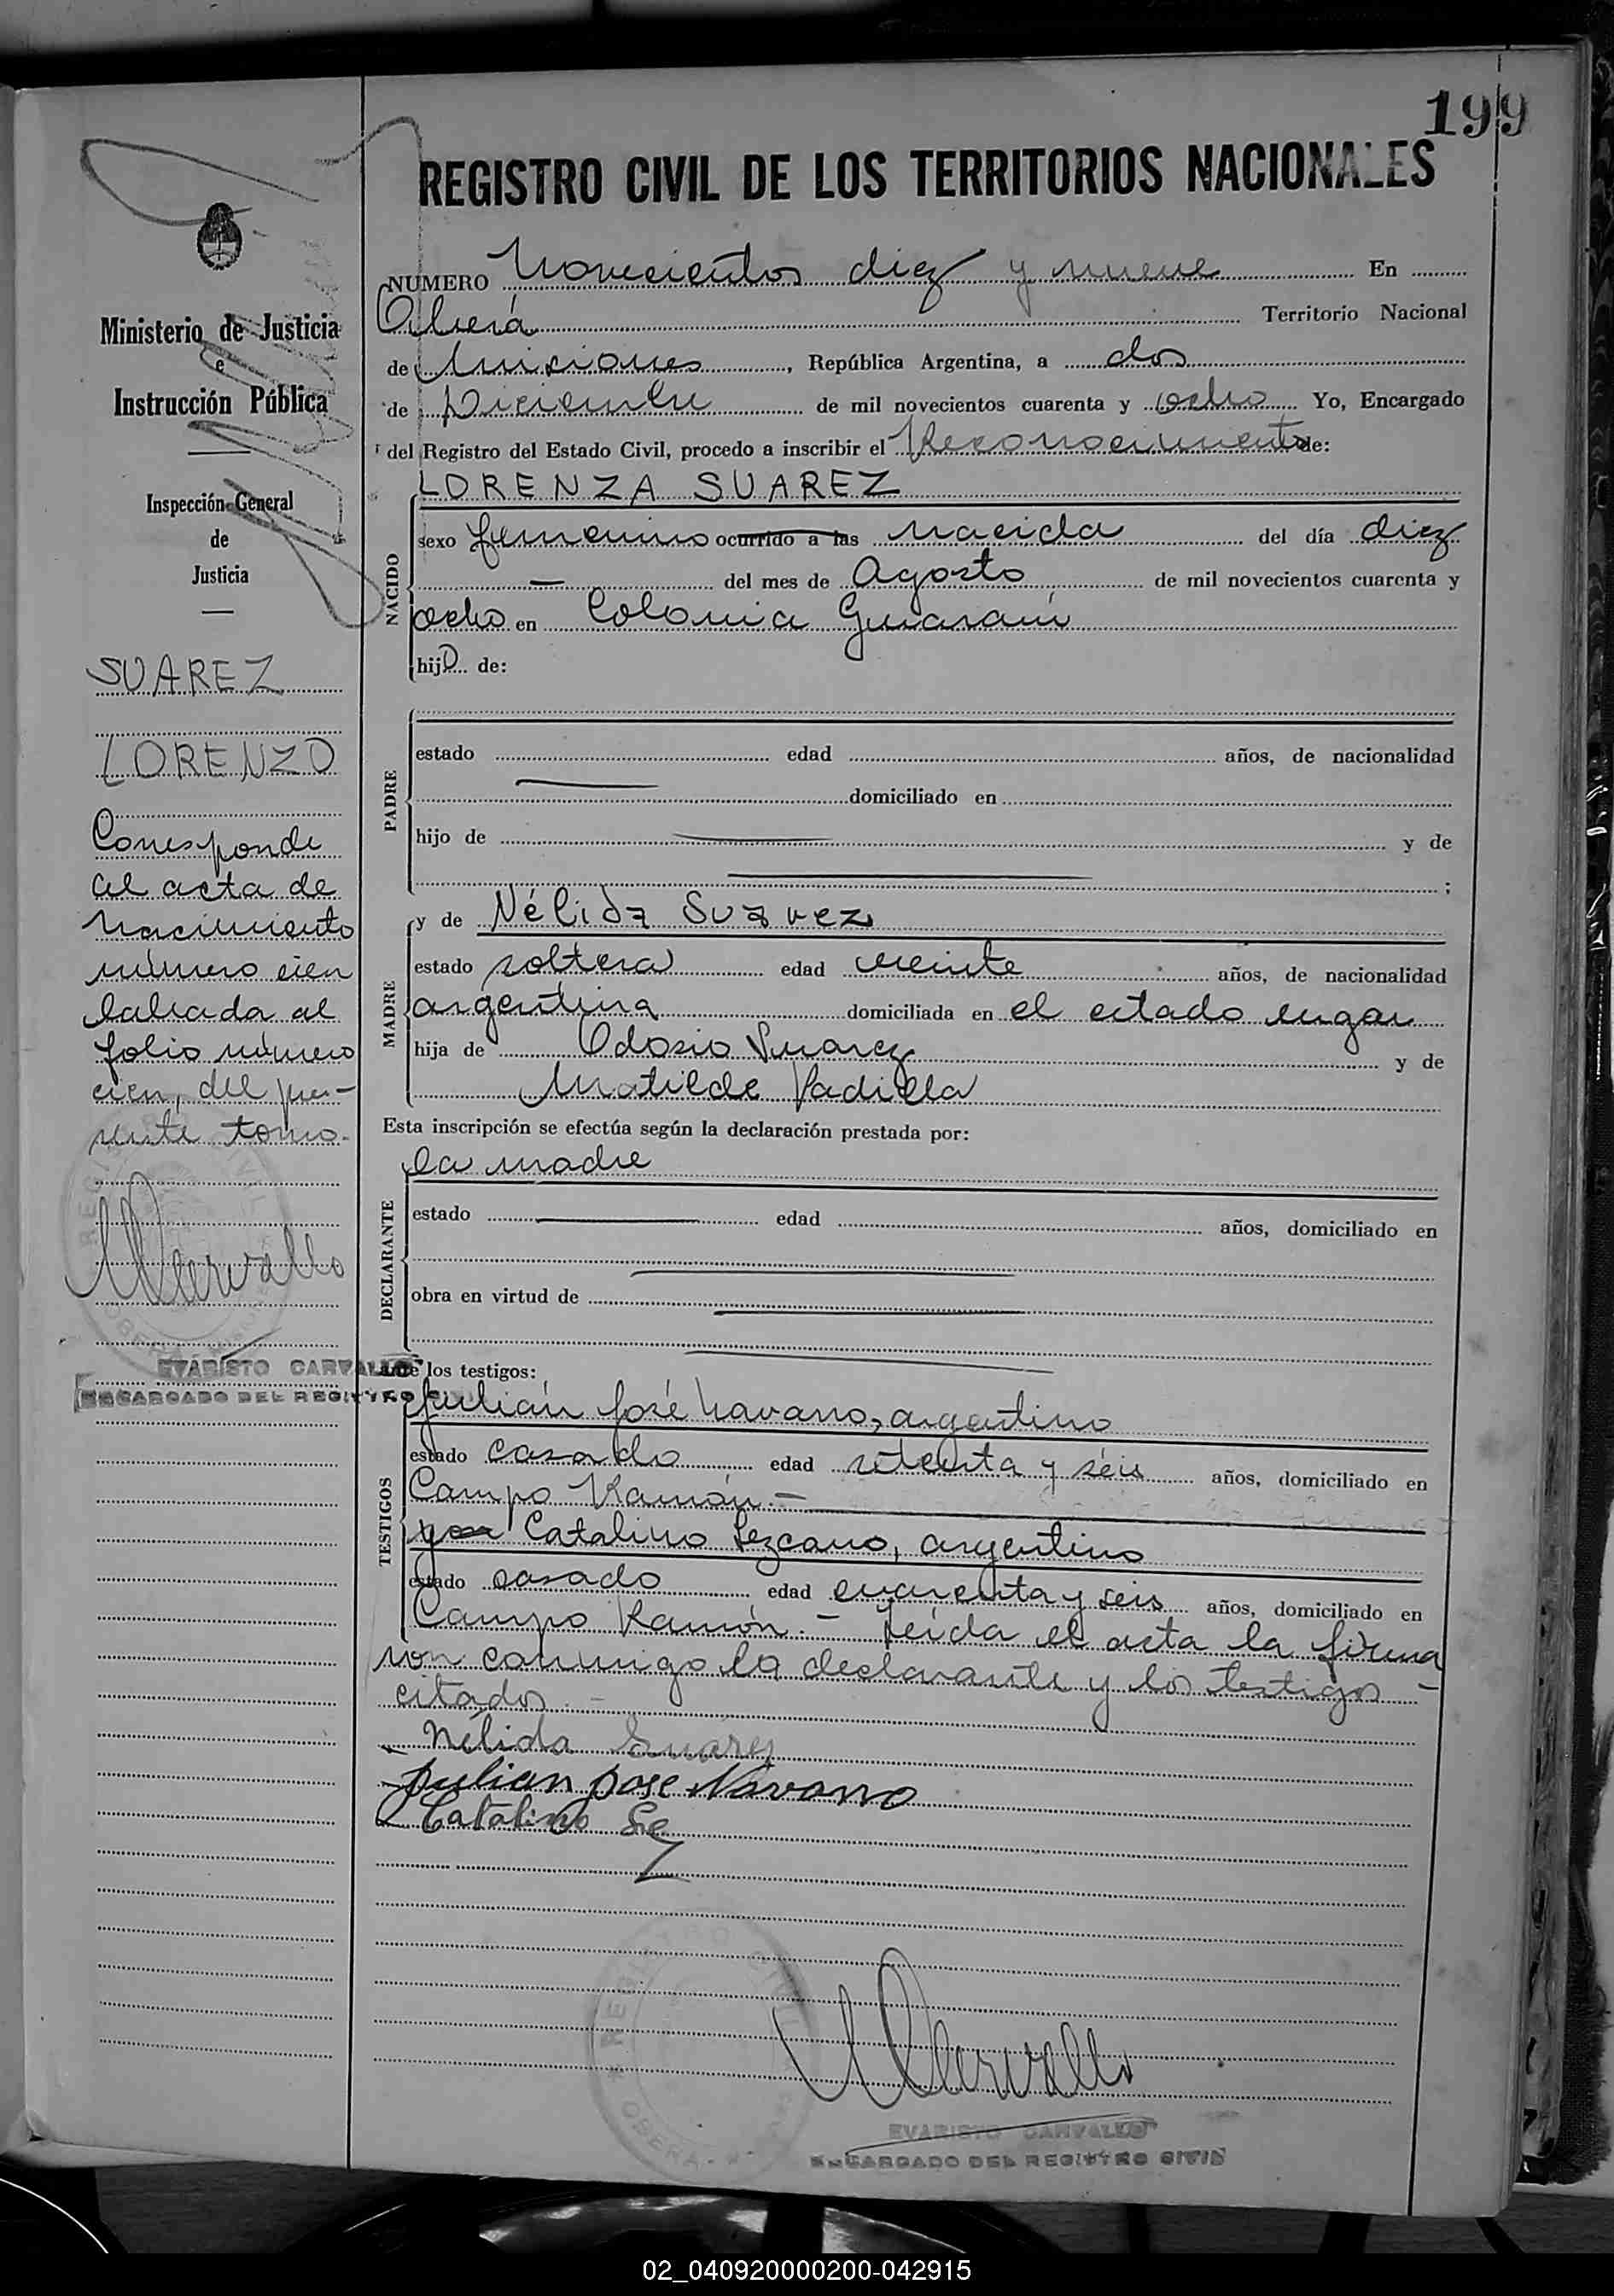 199
REGISTRO CIVIL DE LOS TERRITORIOS NACIONALES
NUMERO Novecientos diez y nueve En
Oberá Territorio Nacional
de Misiones, República Argentina, a dos
de Diciembre de mil novecientos cuarenta y ocho Yo, Encargado
del Registro del Estado Civil, procedo a inscribir el Reconocimiento de:
LORENZA SUAREZ
NACIDO
sexo femenino ocurrido a las nacida del día diez
— del mes de Agosto de mil novecientos cuarenta y
ocho en Colonia Guaraní
hijo de:
PADRE
estado edad años, de nacionalidad
domiciliado en
hijo de y de
;
MADRE
y de Nélida Suarez
estado soltera edad veinte años, de nacionalidad
argentina domiciliada en el citado lugar
hija de Odosio Suarez y de
Matilde Padilla
Esta inscripción se efectúa según la declaración prestada por:
DECLARANTE
la madre
estado edad años, domiciliado en
obra en virtud de
ante los testigos:
TESTIGOS
Julián José Navarro, argentino
estado casado edad setenta y séis años, domiciliado en
Campo Ramón.—
y Catalino Lezcano, argentino
estado casado edad cuarenta y seis años, domiciliado en
Campo Ramón.— Leída el acta la firma
ron conmigo la declarante y los testigos —
citados.—
Nélida Suárez
Julian Jose Navarro
Catalino
EVARISTO CARVALLO
ENCARGADO DEL REGISTRO CIVIL
REGISTRO CIVIL
OBERA
Ministerio de Justicia
e
Instrucción Pública
Inspección General
de
Justicia
SUAREZ
LORENZO
Corresponde
al acta de
nacimiento
número cien
labrada al
folio número
cien, del pre-
sente tomo.
EVARISTO CARVALLO
ENCARGADO DEL REGISTRO
02_040920000200-042915